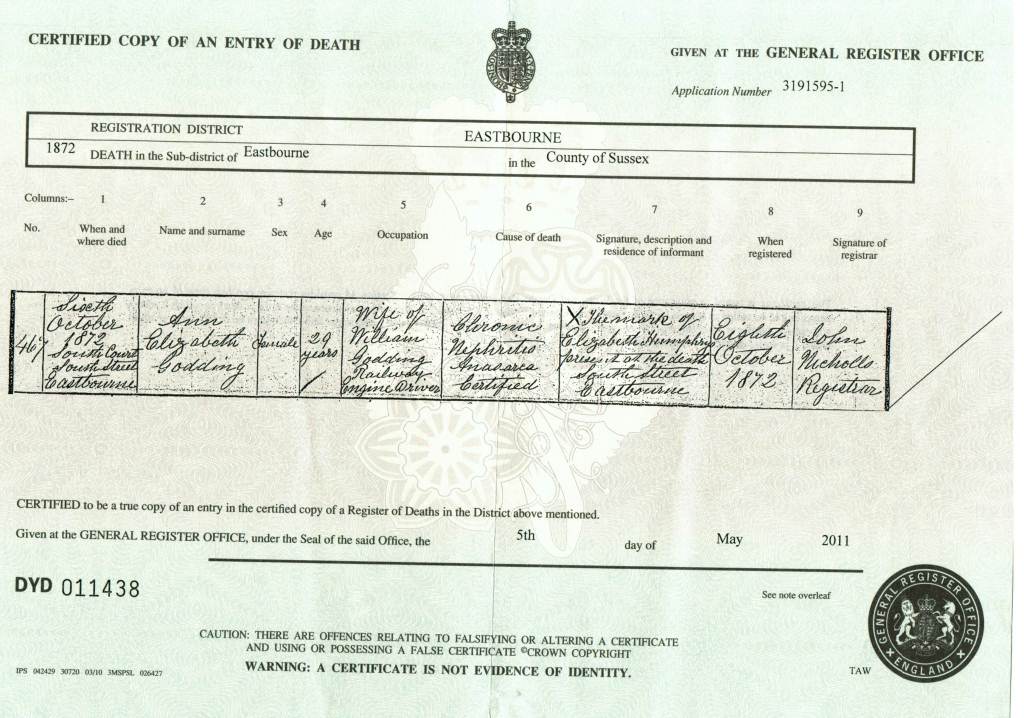 CERTIFIED COPY OF AN ENTRY OF DEATH
GIVEN AT THE GENERAL REGISTER OFFICE
Application Number 3191595-1
REGISTRATION DISTRICT EASTBOURNE
1872 DEATH in the Sub-district of Eastbourne in the County of Sussex
Columns:- 1 2 3 4 5 6 7 8 9
No. When and where died Name and surname Sex Age Occupation Cause of death Signature, description and residence of informant When registered Signature of registrar
467
Sixth
October
1872
South Court
South Street
Eastbourne
Ann
Elizabeth
Godding
Female
29
years
Wife of
William
Godding
Railway
Engine Driver
Chronic
Nephritis
Anasarca
Certified
X The mark of
Elizabeth Humphry
present at the death
South Street
Eastbourne
Eighth
October
1872
John
Nicholls
Registrar
CERTIFIED to be a true copy of an entry in the certified copy of a Register of Deaths in the District above mentioned.
Given at the GENERAL REGISTER OFFICE, under the Seal of the said Office, the 5th day of May 2011
DYD 011438
See note overleaf
CAUTION: THERE ARE OFFENCES RELATING TO FALSIFYING OR ALTERING A CERTIFICATE
AND USING OR POSSESSING A FALSE CERTIFICATE ©CROWN COPYRIGHT
WARNING: A CERTIFICATE IS NOT EVIDENCE OF IDENTITY.
IPS 042429 30720 03/10 3MSPSL 026427
TAW
GENERAL REGISTER OFFICE
ENGLAND